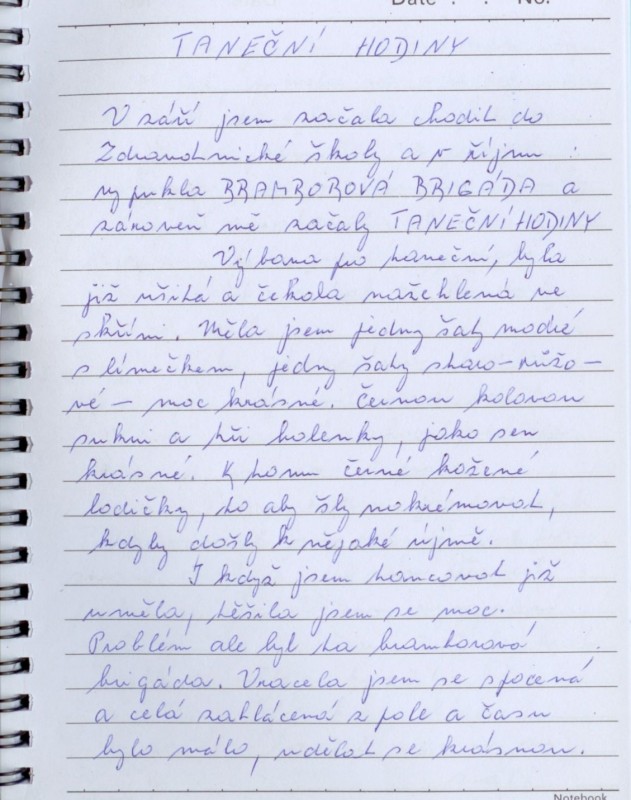 Date . . No.
TANEČNÍ HODINY
V září jsem začala chodit do
Zdravotnické školy a v říjnu
vypukla BRAMBOROVÁ BRIGÁDA a
zároveň mě začaly TANEČNÍ HODINY
Výbava pro taneční, byla
již ušitá a čekala nažehlená ve
skříni. Měla jsem jedny šaty modré
s límečkem, jedny šaty staro-růžo-
vé – moc krásné. Černou kolovou
sukni a tři halenky, jako sen
krásné. K tomu černé kožené
lodičky, to aby šly nakrémovat,
kdyby došly k nějaké újmě.
I když jsem tancovat již
uměla, těšila jsem se moc.
Problém ale byl ta bramborová
brigáda. Vracela jsem se spocená
a celá zablácená z pole a času
bylo málo, udělat se krásnou.
Notebook